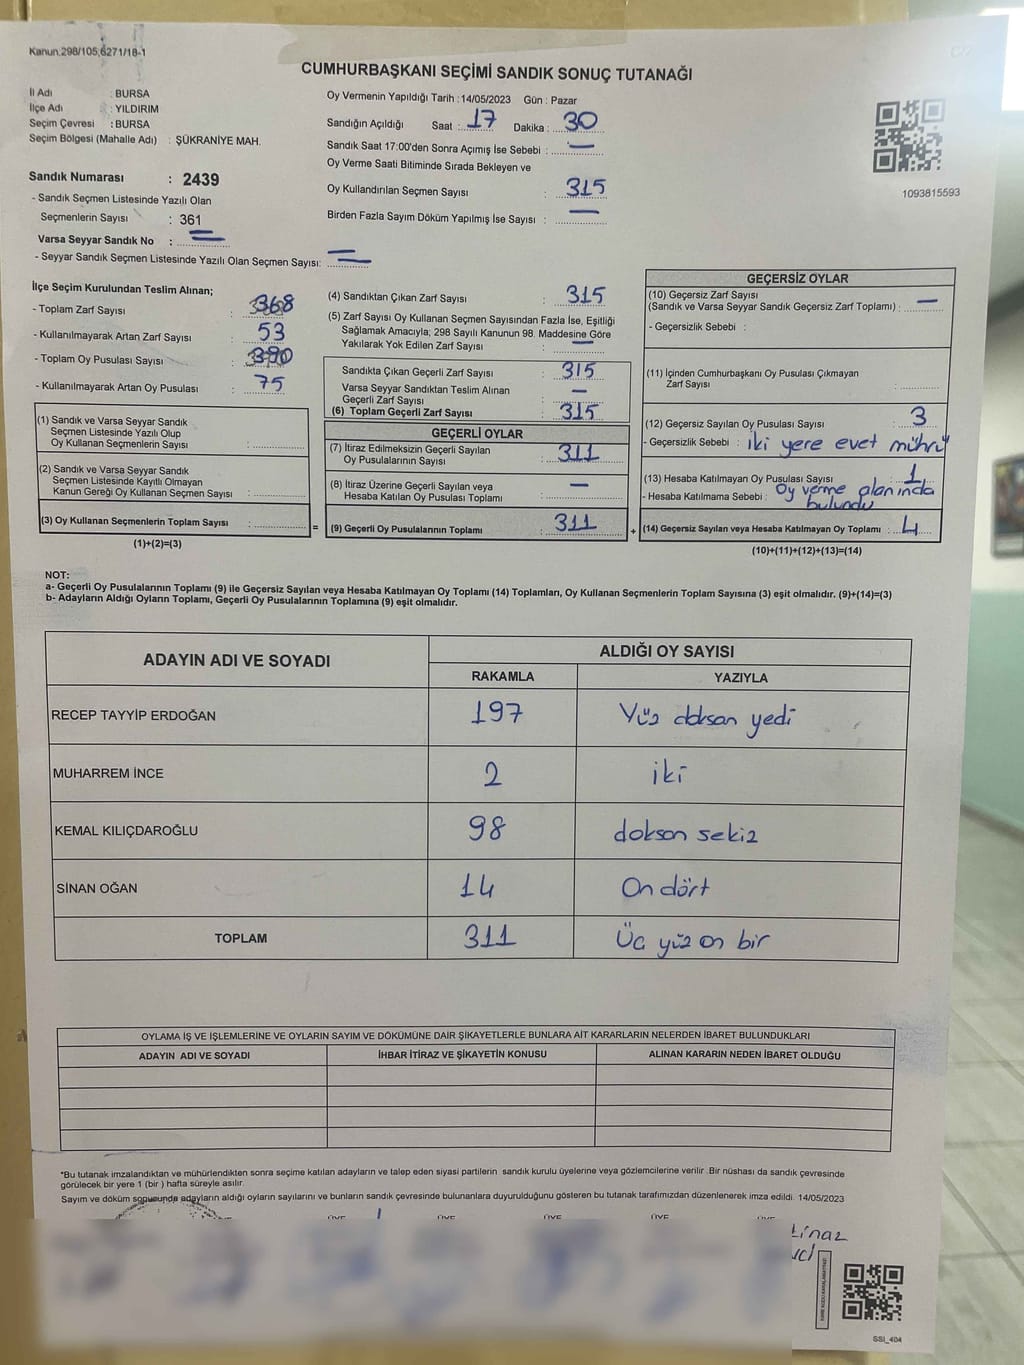 Kanun.298/105,6271/18-1
CUMHURBAŞKANI SEÇİMİ SANDIK SONUÇ TUTANAĞI
İl Adı : BURSA
İlçe Adı : YILDIRIM
Seçim Çevresi : BURSA
Seçim Bölgesi (Mahalle Adı) : ŞÜKRANİYE MAH.
Sandık Numarası : 2439
- Sandık Seçmen Listesinde Yazılı Olan
Seçmenlerin Sayısı : 361
Varsa Seyyar Sandık No : —
- Seyyar Sandık Seçmen Listesinde Yazılı Olan Seçmen Sayısı: —
Oy Vermenin Yapıldığı Tarih : 14/05/2023 Gün : Pazar
Sandığın Açıldığı Saat : 17 Dakika : 30
Sandık Saat 17:00'den Sonra Açımış İse Sebebi : —
Oy Verme Saati Bitiminde Sırada Bekleyen ve
Oy Kullandırılan Seçmen Sayısı : 315
Birden Fazla Sayım Döküm Yapılmış İse Sayısı : —
1093815593
İlçe Seçim Kurulundan Teslim Alınan;
- Toplam Zarf Sayısı : 368
- Kullanılmayarak Artan Zarf Sayısı : 53
- Toplam Oy Pusulası Sayısı : 390
- Kullanılmayarak Artan Oy Pusulası : 75
(1) Sandık ve Varsa Seyyar Sandık
Seçmen Listesinde Yazılı Olup
Oy Kullanan Seçmenlerin Sayısı :
(2) Sandık ve Varsa Seyyar Sandık
Seçmen Listesinde Kayıtlı Olmayan
Kanun Gereği Oy Kullanan Seçmen Sayısı :
(3) Oy Kullanan Seçmenlerin Toplam Sayısı : =
(1)+(2)=(3)
(4) Sandıktan Çıkan Zarf Sayısı : 315
(5) Zarf Sayısı Oy Kullanan Seçmen Sayısından Fazla İse, Eşitliği
Sağlamak Amacıyla; 298 Sayılı Kanunun 98. Maddesine Göre
Yakılarak Yok Edilen Zarf Sayısı : —
Sandıkta Çıkan Geçerli Zarf Sayısı : 315
Varsa Seyyar Sandıktan Teslim Alınan
Geçerli Zarf Sayısı : —
(6) Toplam Geçerli Zarf Sayısı : 315
GEÇERLİ OYLAR
(7) İtiraz Edilmeksizin Geçerli Sayılan
Oy Pusulalarının Sayısı : 311
(8) İtiraz Üzerine Geçerli Sayılan veya
Hesaba Katılan Oy Pusulası Toplamı : —
(9) Geçerli Oy Pusulalarının Toplamı : 311 +
GEÇERSİZ OYLAR
(10) Geçersiz Zarf Sayısı
(Sandık ve Varsa Seyyar Sandık Geçersiz Zarf Toplamı) : —
- Geçersizlik Sebebi :
(11) İçinden Cumhurbaşkanı Oy Pusulası Çıkmayan
Zarf Sayısı :
(12) Geçersiz Sayılan Oy Pusulası Sayısı : 3
- Geçersizlik Sebebi : iki yere evet mührü
(13) Hesaba Katılmayan Oy Pusulası Sayısı : 1
- Hesaba Katılmama Sebebi : Oy verme alanında
bulundu
(14) Geçersiz Sayılan veya Hesaba Katılmayan Oy Toplamı : 4
(10)+(11)+(12)+(13)=(14)
NOT:
a- Geçerli Oy Pusulalarının Toplamı (9) ile Geçersiz Sayılan veya Hesaba Katılmayan Oy Toplamı (14) Toplamları, Oy Kullanan Seçmenlerin Toplam Sayısına (3) eşit olmalıdır. (9)+(14)=(3)
b- Adayların Aldığı Oyların Toplamı, Geçerli Oy Pusulalarının Toplamına (9) eşit olmalıdır.
ADAYIN ADI VE SOYADI
ALDIĞI OY SAYISI
RAKAMLA YAZIYLA
RECEP TAYYİP ERDOĞAN 197 Yüz doksan yedi
MUHARREM İNCE 2 iki
KEMAL KILIÇDAROĞLU 98 doksan sekiz
SİNAN OĞAN 14 On dört
TOPLAM 311 Üç yüz on bir
OYLAMA İŞ VE İŞLEMLERİNE VE OYLARIN SAYIM VE DÖKÜMÜNE DAİR ŞİKAYETLERLE BUNLARA AİT KARARLARIN NELERDEN İBARET BULUNDUKLARI
ADAYIN ADI VE SOYADI İHBAR İTİRAZ VE ŞİKAYETİN KONUSU ALINAN KARARIN NEDEN İBARET OLDUĞU
*Bu tutanak imzalandıktan ve mühürlendikten sonra seçime katılan adayların ve talep eden siyasi partilerin sandık kurulu üyelerine veya gözlemcilerine verilir .Bir nüshası da sandık çevresinde
görülecek bir yere 1 (bir ) hafta süreyle asılır.
Sayım ve döküm sonucunda adayların aldığı oyların sayılarını ve bunların sandık çevresinde bulunanlara duyurulduğunu gösteren bu tutanak tarafımızdan düzenlenerek imza edildi. 14/05/2023
ÜYE ÜYE ÜYE ÜYE ÜYE
SSI_404